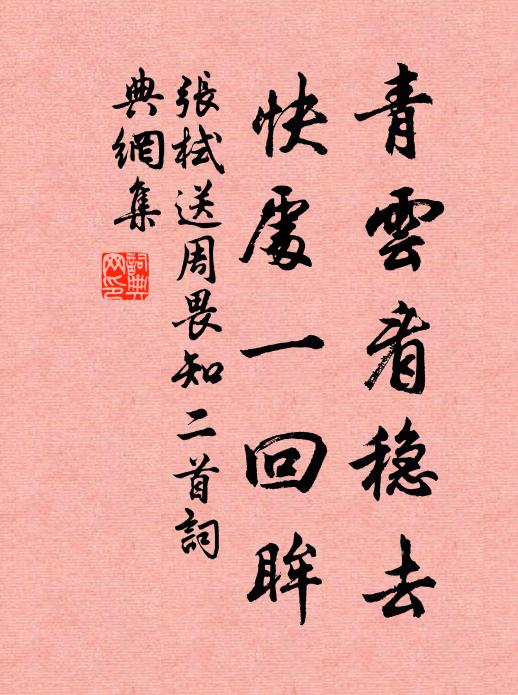 青雲看稳去
快處一回眸
張栻送周畏知二首詞
典網集
詞典网印